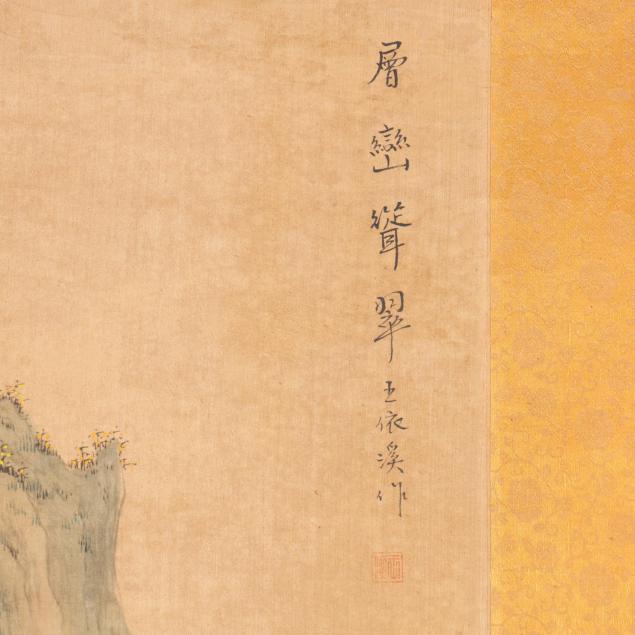 層巒聳翠王依溪作